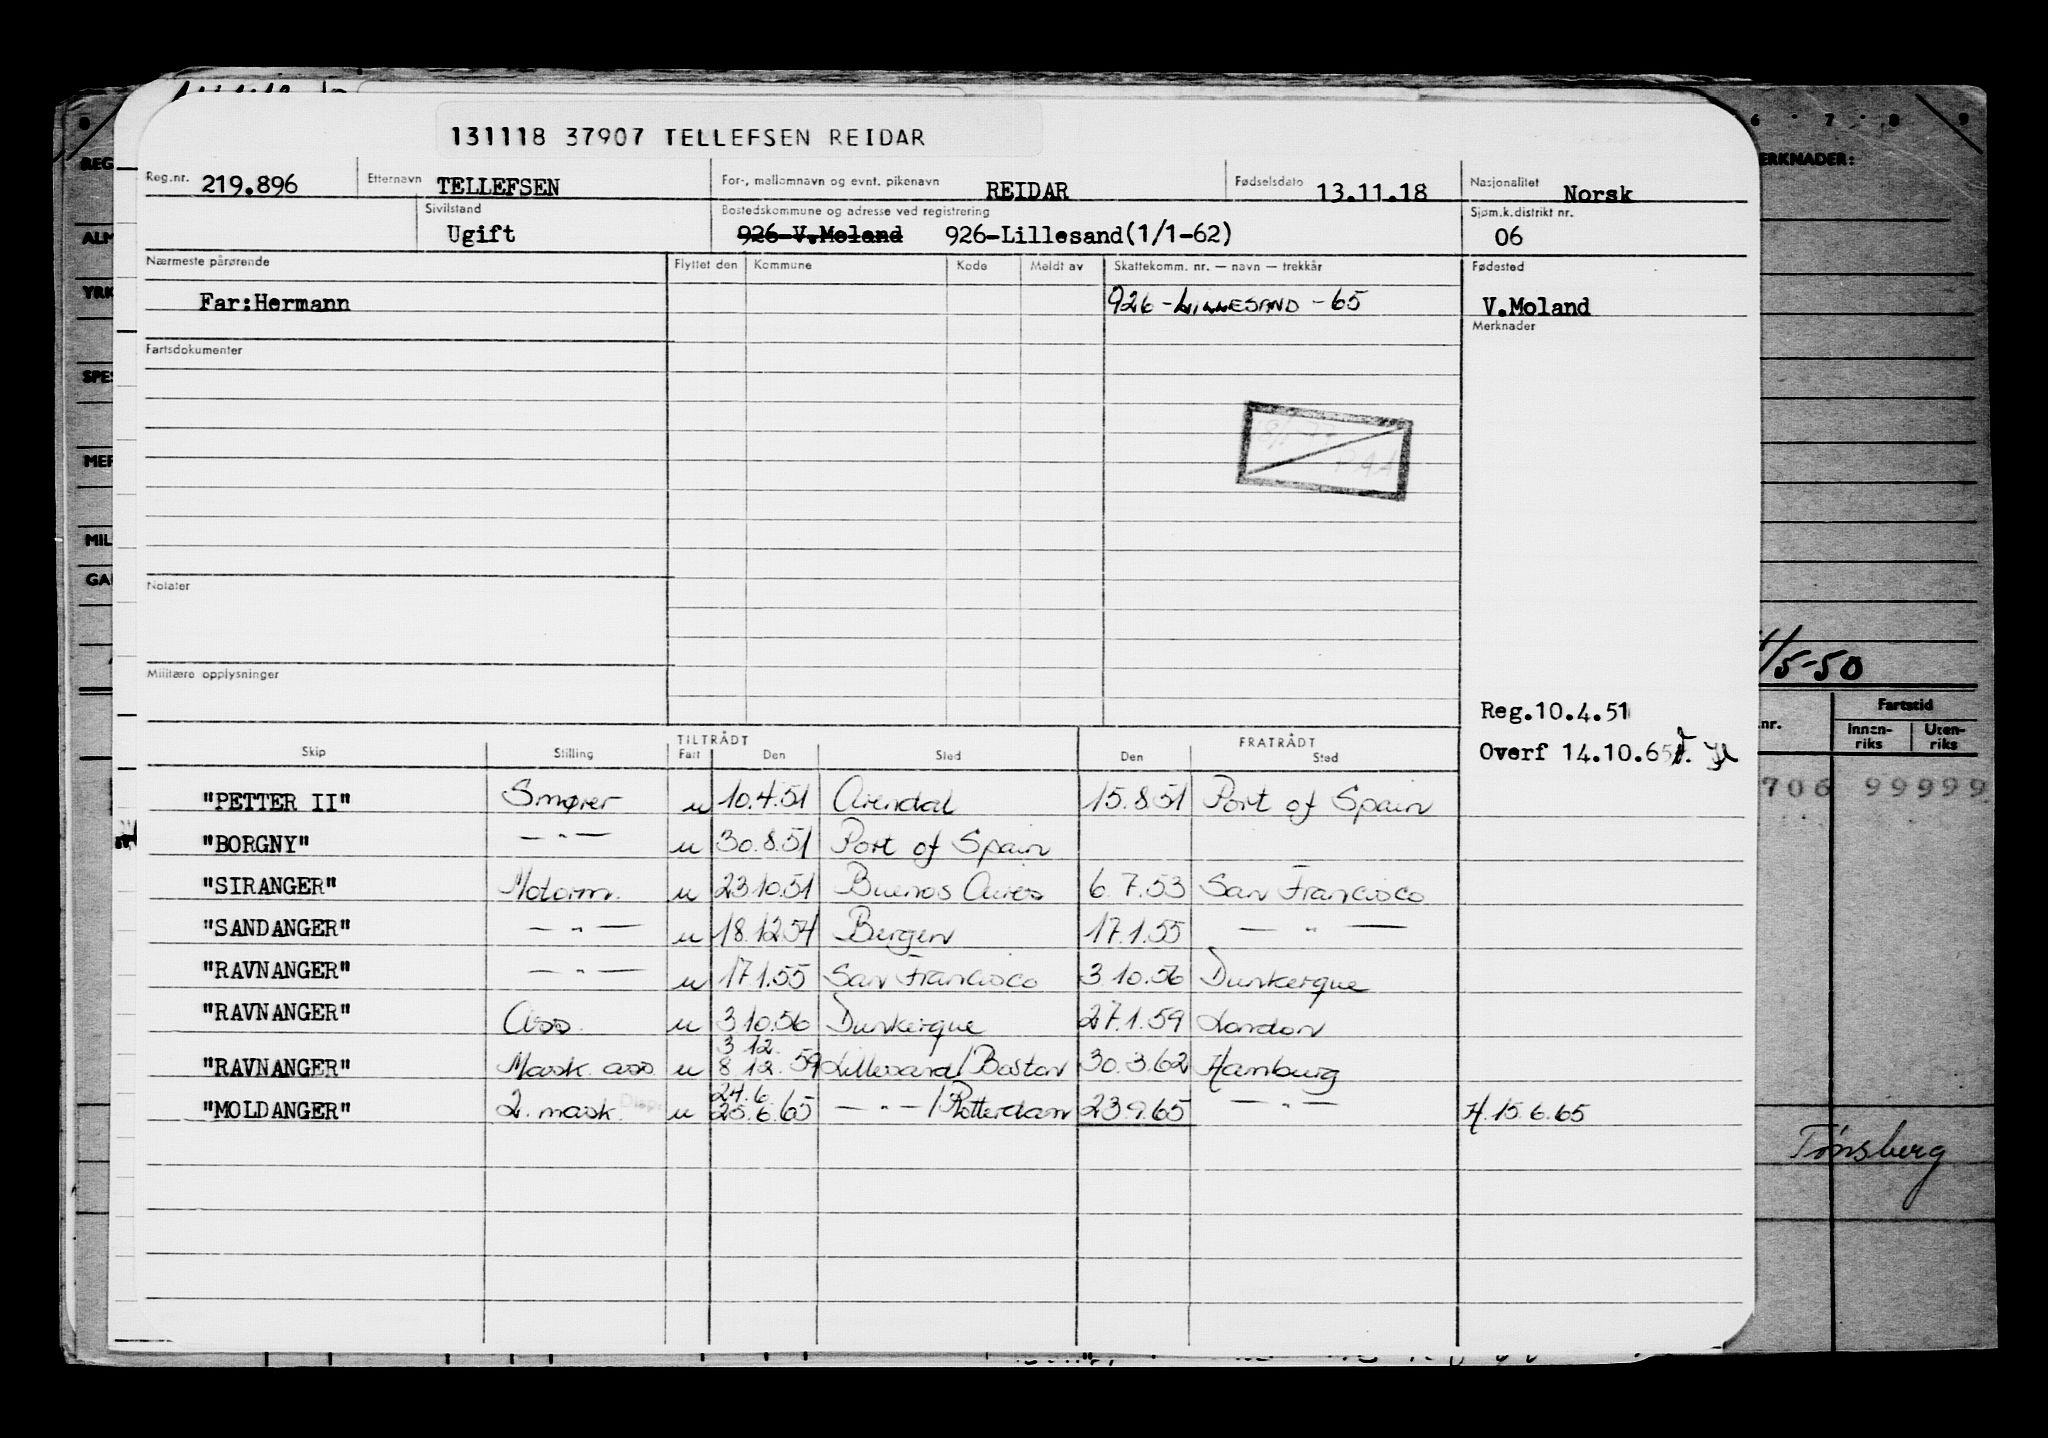 131118 37907 TELLEFSEN REIDAR
Reg.nr. 219.896 Etternavn TELLEFSEN For-, mellomnavn og evnt. pikenavn REIDAR Fødselsdato 13.11.18 Nasjonalitet Norsk
Sivilstand Ugift Bostedskommune og adresse ved registrering 926-V.Moland 926-Lillesand(1/1-62) Sjøm.k.distrikt nr. 06
Nærmeste pårørende Flyttet den Kommune Kode Meldt av Skattekomm. nr. — navn — trekkår Fødested
Far:Hermann 926-LILLESAND-65 V.Moland
Merknader
Fartsdokumenter
Notater
Militære opplysninger
Reg.10.4.51
Overf 14.10.65
TILTRÅDT FRATRÅDT
Skip Stilling Fart Den Sted Den Sted
"PETTER II" Smører u 10.4.51 Arendal 15.8.51 Port of Spain
"BORGNY" — " — u 30.8.51 Port of Spain
"SIRANGER" Motorm. u 23.10.51 Buenos Aires 6.7.53 San Francisco
"SANDANGER" — " — u 18.12.54 Bergen 17.1.55 — " —
"RAVNANGER" — " — u 17.1.55 San Francisco 3.10.56 Dunkerque
"RAVNANGER" Ass. u 3.10.56 Dunkerque 27.1.59 London
3.12.
"RAVNANGER" Mask. ass. u 8.12.59 Lillesand/Boston 30.3.62 Hamburg
24.6.
"MOLDANGER" 2. mask. u 25.6.65 — " — /Rotterdam 23.9.65 — " — H.15.6.65
6 7 8 9
ERKNADER:
/5-50
nr. Fartstid
Innen-riks Uten-riks
706 99999
Tønsberg
REG
ALM
YRK
SPES
MER
MIL
GA